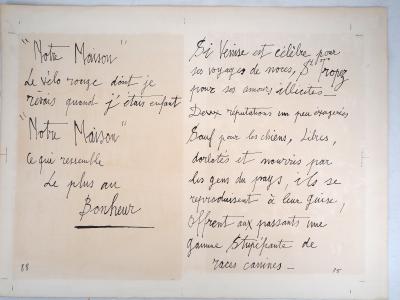 "Notre Maison"
Le vélo rouge dont je
rêvais quand j'étais enfant
"Notre Maison"
Ce qui ressemble
Le plus au
Bonheur
88
Si Venise est célèbre pour
ses voyages de noces, St Tropez
pour ses amours illicites_
Deux réputations un peu exagérées
Sauf pour les chiens, Libres,
dorlotés et nourris par
les gens du pays, ils se
reproduisent à leur guise,
offrent aux passants une
gamme stupéfiante de
races canines_